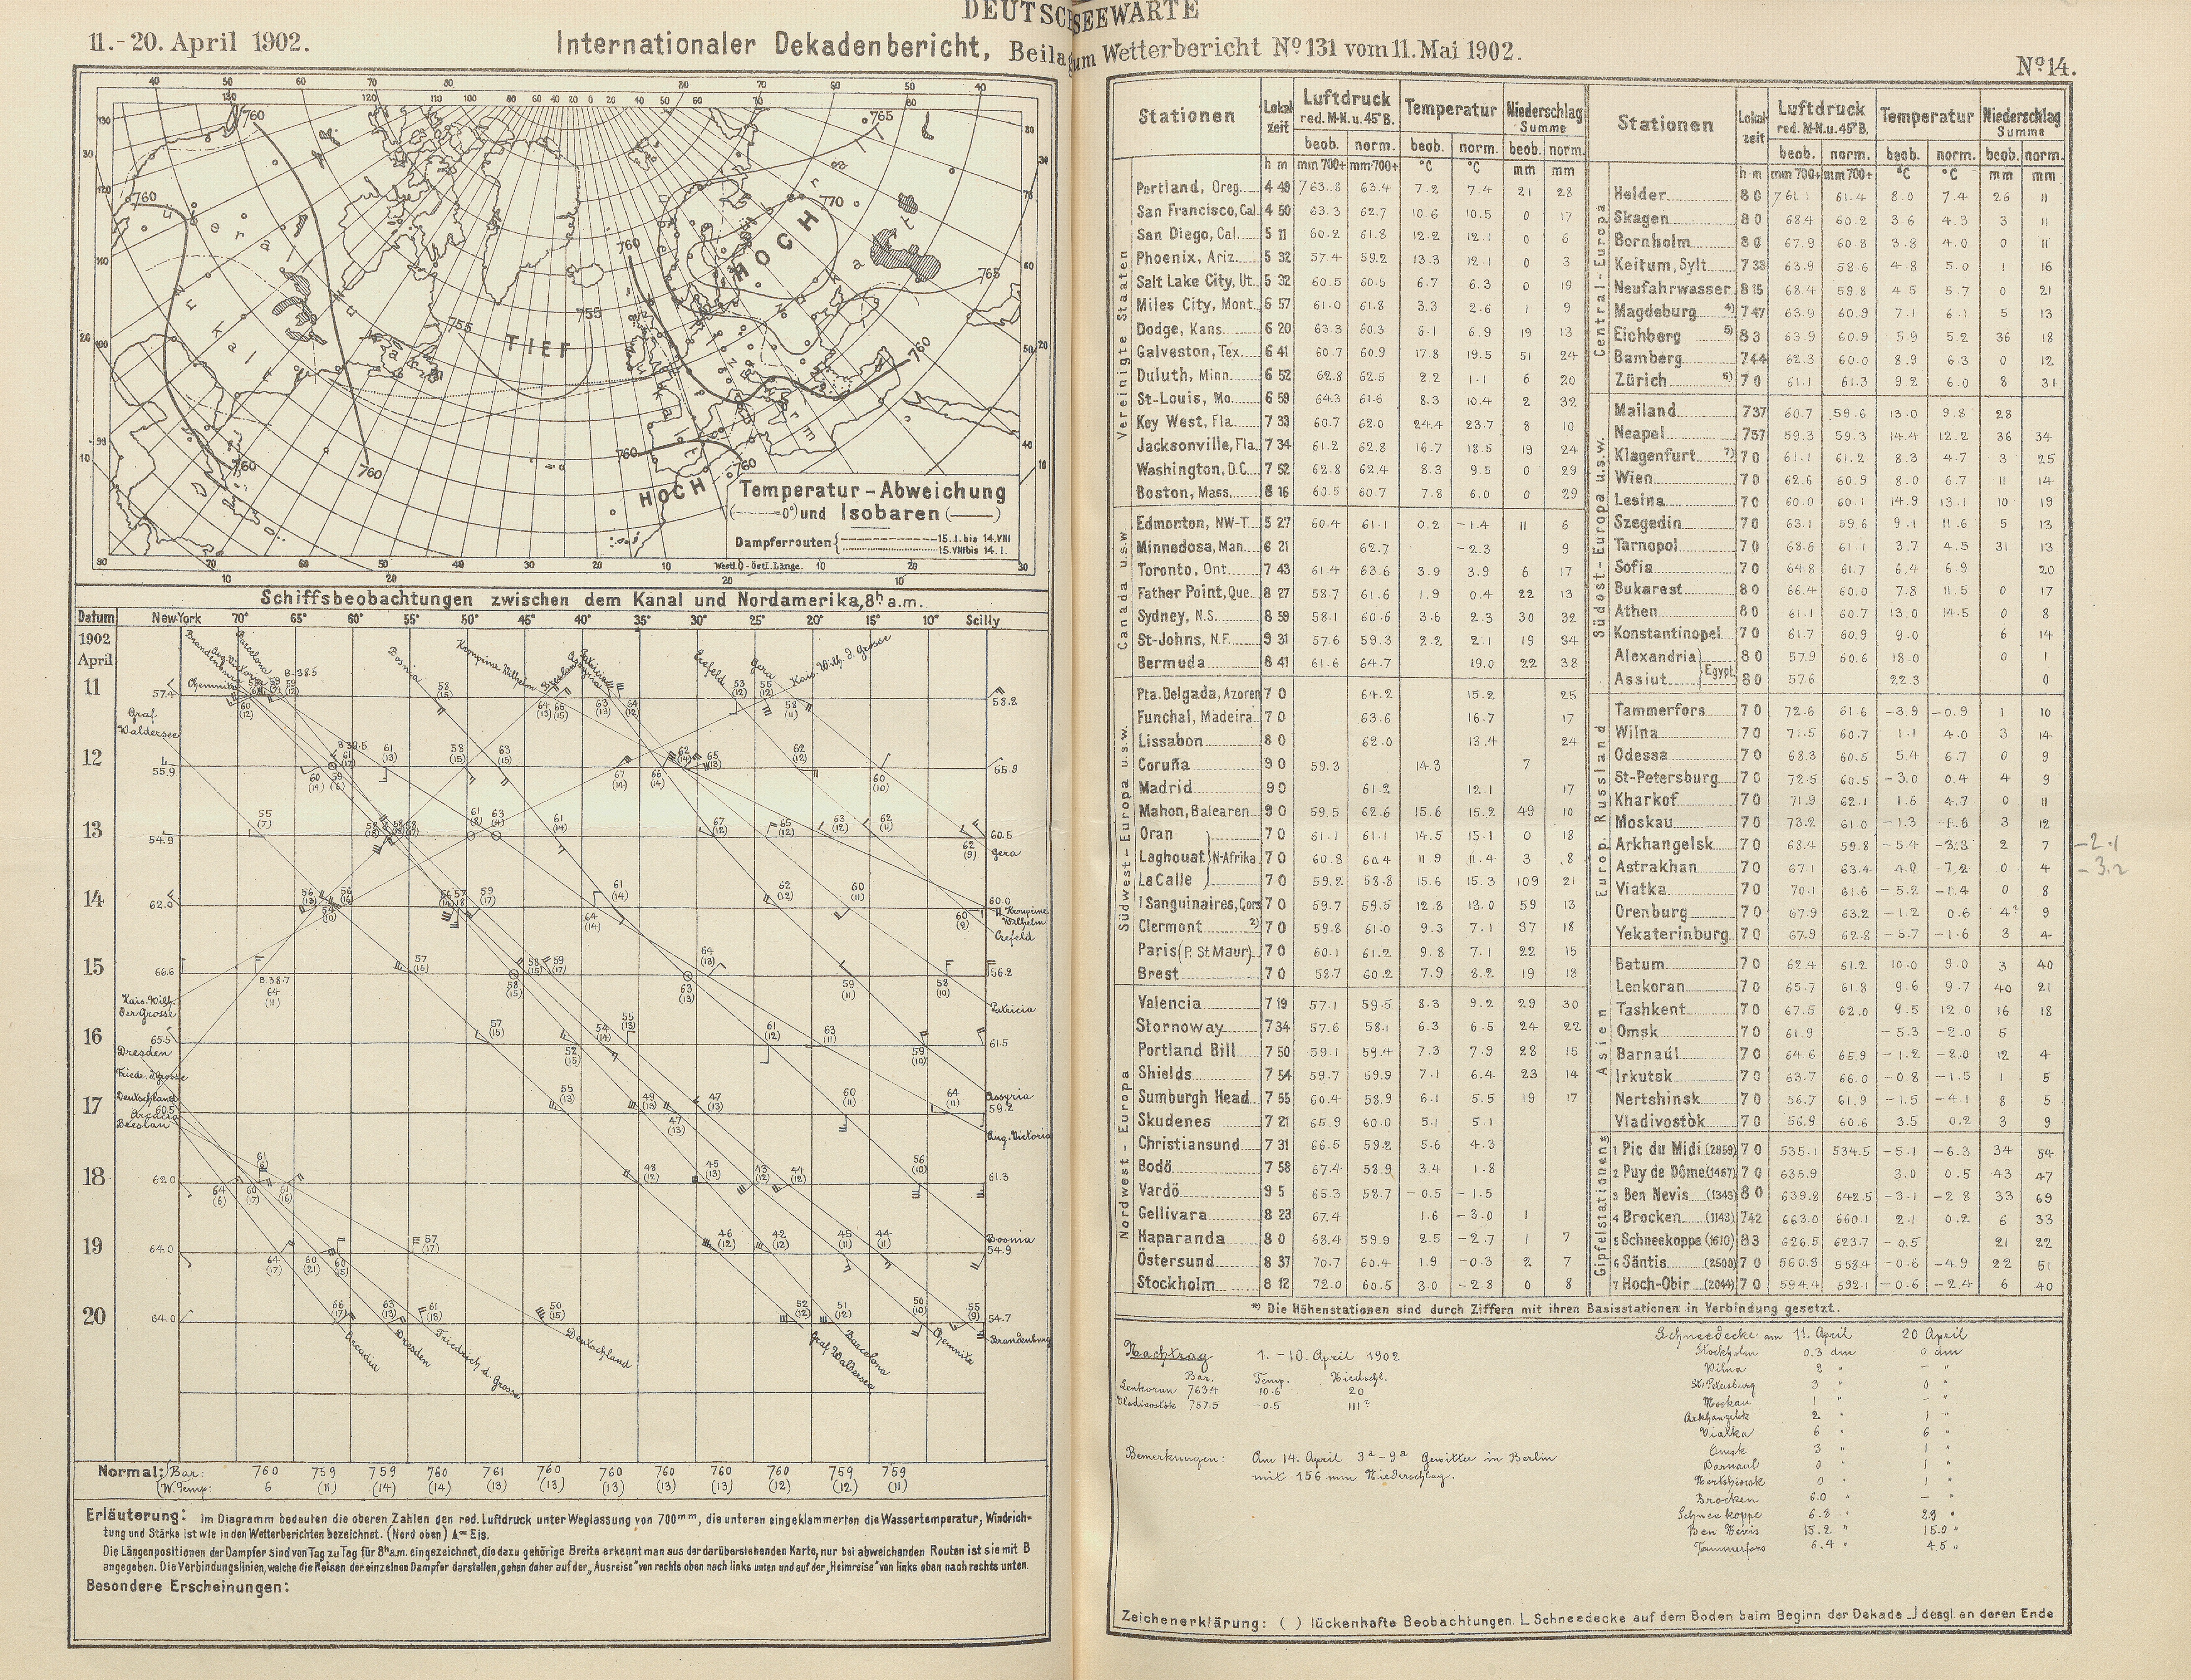 DEUTSCHE SEEWARTE
11.-20. April 1902.
Internationaler Dekadenbericht, Beilage zum Wetterbericht Nº 131 vom 11. Mai 1902.
Nº 14.
HOCH
TIEF
HOCH
760
760
760
760
765
770
765
755
755
760
760
760
760
Temperatur-Abweichung
(——— 0°) und Isobaren (———)
Dampferrouten 15.I. bis 14.VIII
15.VIII bis 14.I.
Westl. 0 - östl. Länge.
Schiffsbeobachtungen zwischen dem Kanal und Nordamerika, 8h a.m.
Datum New-York 70° 65° 60° 55° 50° 45° 40° 35° 30° 25° 20° 15° 10° Scilly
1902
April
11 57.4 58.2
12 55.9 65.9
13 54.9 60.5
14 62.0 60.0
15 66.6 56.2
16 65.5 61.5
17 60.5 59.2
18 62.0 61.3
19 64.0 54.9
20 64.0 54.7
Graf Waldersee
Kais. Wilh. der Grosse
Dresden
Friedr. d. Grosse
Deutschland
Arcadia
Breslau
Bosnia
Kronprinz Wilhelm
Crefeld
Gera
Kais. Wilh. d. Grosse
Chemnitz
Gera
Kronprinz Wilhelm
Crefeld
Patricia
Assyria
Aug. Victoria
Bosnia
Brandenburg
Arcadia
Dresden
Friedrich d. Grosse
Deutschland
Graf Waldersee
Barcelona
Chemnitz
Normal: Bar: 760 759 759 760 761 760 760 760 760 760 759 759
W. Temp: 6 (11) (14) (14) (13) (13) (13) (13) (13) (12) (12) (11)
Erläuterung: Im Diagramm bedeuten die oberen Zahlen den red. Luftdruck unter Weglassung von 700mm, die unteren eingeklammerten die Wassertemperatur; Windrich-
tung und Stärke ist wie in den Wetterberichten bezeichnet. (Nord oben) Eis.
Die Längenpositionen der Dampfer sind von Tag zu Tag für 8h a.m. eingezeichnet, die dazu gehörige Breite erkennt man aus der darüberstehenden Karte, nur bei abweichenden Routen ist sie mit B
angegeben. Die Verbindungslinien, welche die Reisen der einzelnen Dampfer darstellen, gehen daher auf der „Ausreise" von rechts oben nach links unten und auf der „Heimreise" von links oben nach rechts unten.
Besondere Erscheinungen:
Stationen Lokalzeit Luftdruck red. M-N. u. 45° B. Temperatur Niederschlag Summe
beob. norm. beob. norm. beob. norm.
h m mm 700+ mm 700+ °C °C mm mm
Vereinigte Staaten
Portland, Oreg. 4 48 763.8 63.4 7.2 7.4 21 28
San Francisco, Cal. 4 50 63.3 62.7 10.6 10.5 0 17
San Diego, Cal. 5 11 60.2 61.8 12.2 12.1 0 6
Phoenix, Ariz. 5 32 57.4 59.2 13.3 12.1 0 3
Salt Lake City, Ut. 5 32 60.5 60.5 6.7 6.3 0 19
Miles City, Mont. 6 57 61.0 61.8 3.3 2.6 1 9
Dodge, Kans. 6 20 63.3 60.3 6.1 6.9 19 13
Galveston, Tex. 6 41 60.7 60.9 17.8 19.5 51 24
Duluth, Minn. 6 52 62.8 62.5 2.2 1.1 6 20
St-Louis, Mo. 6 59 64.3 61.6 8.3 10.4 2 32
Key West, Fla. 7 33 60.7 62.0 24.4 23.7 8 10
Jacksonville, Fla. 7 34 61.2 62.8 16.7 18.5 19 24
Washington, D.C. 7 52 62.8 62.4 8.3 9.5 0 29
Boston, Mass. 8 16 60.5 60.7 7.8 6.0 0 29
Canada u.s.w.
Edmonton, NW-T. 5 27 60.4 61.1 0.2 -1.4 11 6
Minnedosa, Man. 6 21 62.7 -2.3 9
Toronto, Ont. 7 43 61.4 63.6 3.9 3.9 6 17
Father Point, Que. 8 27 58.7 61.6 1.9 0.4 22 13
Sydney, N.S. 8 59 58.1 60.6 3.6 2.3 30 32
St-Johns, N.F. 9 31 57.6 59.3 2.2 2.1 19 34
Bermuda 8 41 61.6 64.7 19.0 22 38
Südwest-Europa u.s.w.
Pta. Delgada, Azoren 7 0 64.2 15.2 25
Funchal, Madeira 7 0 63.6 16.7 17
Lissabon 8 0 62.0 13.4 24
Coruña 9 0 59.3 14.3 7
Madrid 9 0 61.2 12.1 17
Mahon, Balearen 9 0 59.5 62.6 15.6 15.2 49 10
Oran 7 0 61.1 61.1 14.5 15.1 0 18
Laghouat N-Afrika 7 0 60.8 60.4 11.9 11.4 3 8
La Calle 7 0 59.2 58.8 15.6 15.3 109 21
I Sanguinaires, Cors. 7 0 59.7 59.5 12.8 13.0 59 13
Clermont 2) 7 0 59.8 61.0 9.3 7.1 37 18
Paris (P. St Maur) 7 0 60.1 61.2 9.8 7.1 22 15
Brest 7 0 58.7 60.2 7.9 8.2 19 18
Nordwest-Europa
Valencia 7 19 57.1 59.5 8.3 9.2 29 30
Stornoway 7 34 57.6 58.1 6.3 6.5 24 22
Portland Bill 7 50 59.1 59.4 7.3 7.9 28 15
Shields 7 54 59.7 59.9 7.1 6.4 23 14
Sumburgh Head 7 55 60.4 58.9 6.1 5.5 19 17
Skudenes 7 21 65.9 60.0 5.1 5.1
Christiansund 7 31 66.5 59.2 5.6 4.3
Bodö 7 58 67.4 58.9 3.4 1.8
Vardö 9 5 65.3 58.7 -0.5 -1.5
Gellivara 8 23 67.4 1.6 -3.0 1
Haparanda 8 0 68.4 59.9 2.5 -2.7 1 7
Östersund 8 37 70.7 60.4 1.9 -0.3 2 7
Stockholm 8 12 72.0 60.5 3.0 -2.8 0 8
Stationen Lokalzeit Luftdruck red. M-N. u. 45° B. Temperatur Niederschlag Summe
beob. norm. beob. norm. beob. norm.
h m mm 700+ mm 700+ °C °C mm mm
Central-Europa
Helder 8 0 761.1 61.4 8.0 7.4 26 11
Skagen 8 0 68.4 60.2 3.6 4.3 3 11
Bornholm 8 0 67.9 60.8 3.8 4.0 0 11
Keitum, Sylt 7 33 63.9 58.6 4.8 5.0 1 16
Neufahrwasser 8 15 68.4 59.8 4.5 5.7 0 21
Magdeburg 4) 7 47 63.9 60.9 7.1 6.1 5 13
Eichberg 5) 8 3 63.9 60.9 5.9 5.2 36 18
Bamberg 7 44 62.3 60.0 8.9 6.3 0 12
Zürich 6) 7 0 61.1 61.3 9.2 6.0 8 31
Südost-Europa u.s.w.
Mailand 7 37 60.7 59.6 13.0 9.8 28
Neapel 7 57 59.3 59.3 14.4 12.2 36 34
Klagenfurt 7) 7 0 61.1 61.2 8.3 4.7 3 25
Wien 7 0 62.6 60.9 8.0 6.7 11 14
Lesina 7 0 60.0 60.1 14.9 13.1 10 19
Szegedin 7 0 63.1 59.6 9.1 11.6 5 13
Tarnopol 7 0 68.6 61.1 3.7 4.5 31 13
Sofia 7 0 64.8 61.7 6.4 6.9 20
Bukarest 8 0 66.4 60.0 7.8 11.5 0 17
Athen 8 0 61.1 60.7 13.0 14.5 0 8
Konstantinopel 7 0 61.7 60.9 9.0 6 14
Alexandria Egypt. 8 0 57.9 60.6 18.0 0 1
Assiut 8 0 57.6 22.3 0
Europ. Russland
Tammerfors 7 0 72.6 61.6 -3.9 -0.9 1 10
Wilna 7 0 71.5 60.7 1.1 4.0 3 14
Odessa 7 0 68.3 60.5 5.4 6.7 0 9
St-Petersburg 7 0 72.5 60.5 -3.0 0.4 4 9
Kharkof 7 0 71.9 62.1 1.6 4.7 0 11
Moskau 7 0 73.2 61.0 -1.3 1.8 3 12
Arkhangelsk 7 0 68.4 59.8 -5.4 -3.3 2 7 -2.1
Astrakhan 7 0 67.1 63.4 4.0 7.2 0 4 -3.2
Viatka 7 0 70.1 61.6 -5.2 -1.4 0 8
Orenburg 7 0 67.9 63.2 -1.2 0.6 4? 9
Yekaterinburg 7 0 67.9 62.8 -5.7 -1.6 3 4
Asien
Batum 7 0 62.4 61.2 10.0 9.0 3 40
Lenkoran 7 0 65.7 61.8 9.6 9.7 40 21
Tashkent 7 0 67.5 62.0 9.5 12.0 16 18
Omsk 7 0 61.9 -5.3 -2.0 5
Barnaúl 7 0 64.6 65.9 -1.2 -2.0 12 4
Irkutsk 7 0 63.7 66.0 -0.8 -1.5 1 5
Nertshinsk 7 0 56.7 61.9 -1.5 -4.1 8 5
Vladivostòk 7 0 56.9 60.6 3.5 0.2 3 9
Gipfelstationen *)
1 Pic du Midi (2859) 7 0 535.1 534.5 -5.1 -6.3 34 54
2 Puy de Dôme (1467) 7 0 635.9 3.0 0.5 43 47
3 Ben Nevis (1343) 8 0 639.8 642.5 -3.1 -2.8 33 69
4 Brocken (1143) 7 42 663.0 660.1 2.1 0.2 6 33
5 Schneekoppe (1610) 8 3 626.5 623.7 -0.5 21 22
6 Säntis (2500) 7 0 560.8 558.4 -0.6 -4.9 22 51
7 Hoch-Obir (2044) 7 0 594.4 592.1 -0.6 -2.4 6 40
*) Die Höhenstationen sind durch Ziffern mit ihren Basisstationen in Verbindung gesetzt.
Nachtrag 1.-10. April 1902
Bar. Temp. Niedschl.
Lenkoran 763.4 10.6 20
Vladivostòk 757.5 -0.5 111?
Bemerkungen: Am 14. April 3a-9a Gewitter in Berlin
mit 156 mm Niederschlag.
Schneedecke am 11. April 20 April
Stockholm 0.3 dm 0 dm
Wilna 2 " - "
St. Petersburg 3 " 0 "
Moskau 1 " - "
Arkhangelsk 2 " 1 "
Viatka 6 " 6 "
Omsk 3 " 1 "
Barnaul 0 " 1 "
Nertshinsk 0 " 1 "
Brocken 6.0 " - "
Schneekoppe 6.8 " 2.9 "
Ben Nevis 15.2 " 15.0 "
Tammerfors 6.4 " 4.5 "
Zeichenerklärung: ( ) lückenhafte Beobachtungen. L Schneedecke auf dem Boden beim Beginn der Dekade ⅃ desgl. an deren Ende